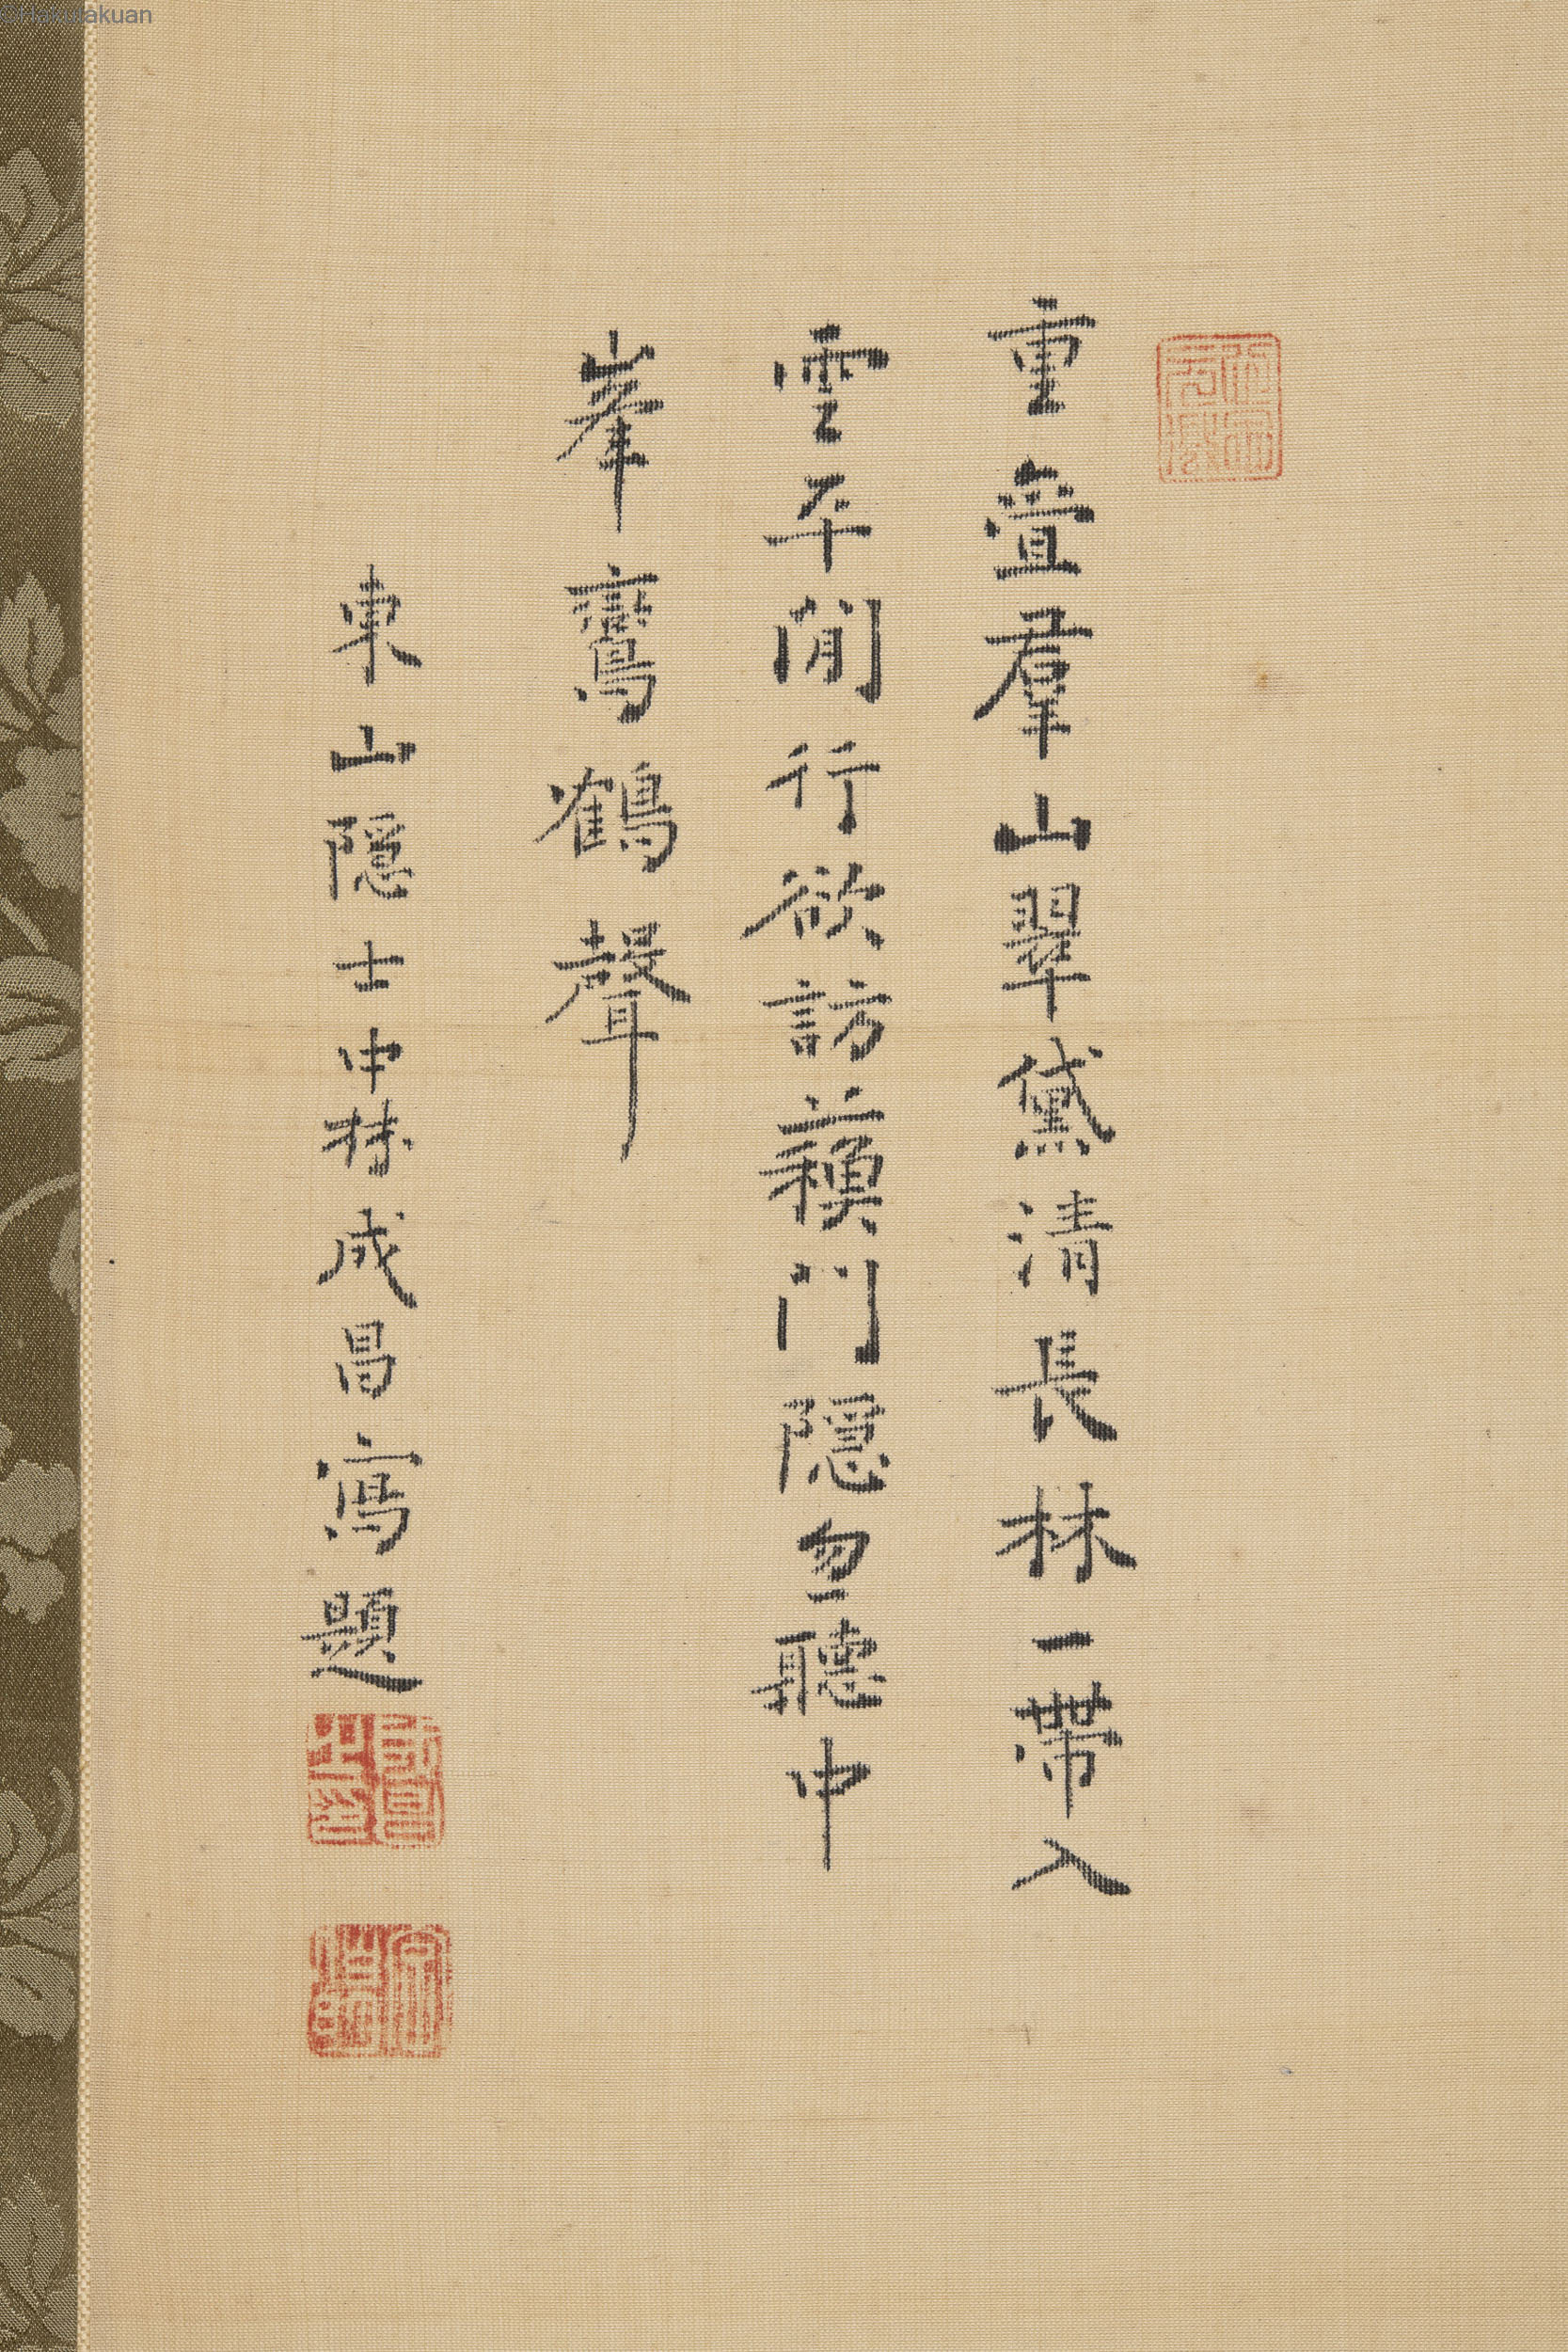 重疊羣山翠黛清長林一帶入
雲平閒行欲訪蘓門隱勿聽中
峯鸞鶴聲
東山隱士中林成昌寫題